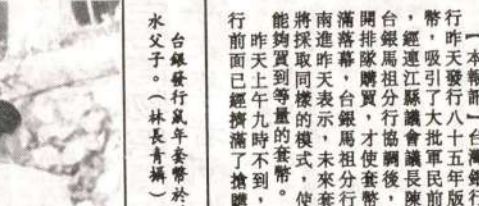 【本報訊】台灣銀行
行昨天發行八十五年版
幣，吸引了大批軍民前
，經連江縣議會議長陳
台銀馬祖分行協調後，
開排隊購買，才使套幣
滿落幕，台銀馬祖分行
南進昨天表示，未來套
將採取同樣的模式，使
能夠買到等量的套幣。
昨天上午九時不到，
行前面已經擠滿了搶購
台銀發行鼠年套幣於
水父子。（林長青攝）